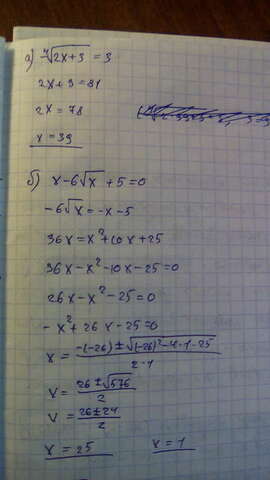 а) ⁴√(2x+3) = 3
2x+3=81
2x = 78
x = 39
б) x-6√x+5=0
-6√x=-x-5
36x=x²+10x+25
36x-x²-10x-25=0
26x-x²-25=0
-x²+26x-25=0
x = (-(-26)±√((-26)²-4·1·25))/(2·1)
x = (26±√576)/2
x = (26±24)/2
x = 25 x = 1